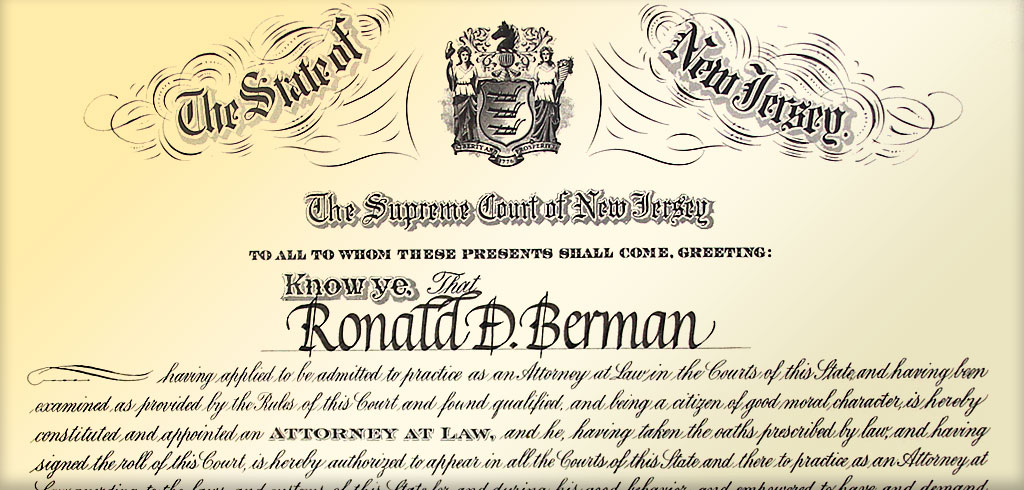 The State of New Jersey.
LIBERTY AND PROSPERITY
1776
The Supreme Court of New Jersey
TO ALL TO WHOM THESE PRESENTS SHALL COME, GREETING:
Know ye, That
Ronald D. Berman
having applied to be admitted to practice as an Attorney at Law in the Courts of this State and having been
examined as provided by the Rules of this Court and found qualified, and being a citizen of good moral character, is hereby
constituted and appointed an ATTORNEY AT LAW, and he, having taken the oaths prescribed by law, and having
signed the roll of this Court, is hereby authorized to appear in all the Courts of this State and there to practice as an Attorney at
Law according to the laws and customs of this State for and during his good behavior, and empowered to have and demand